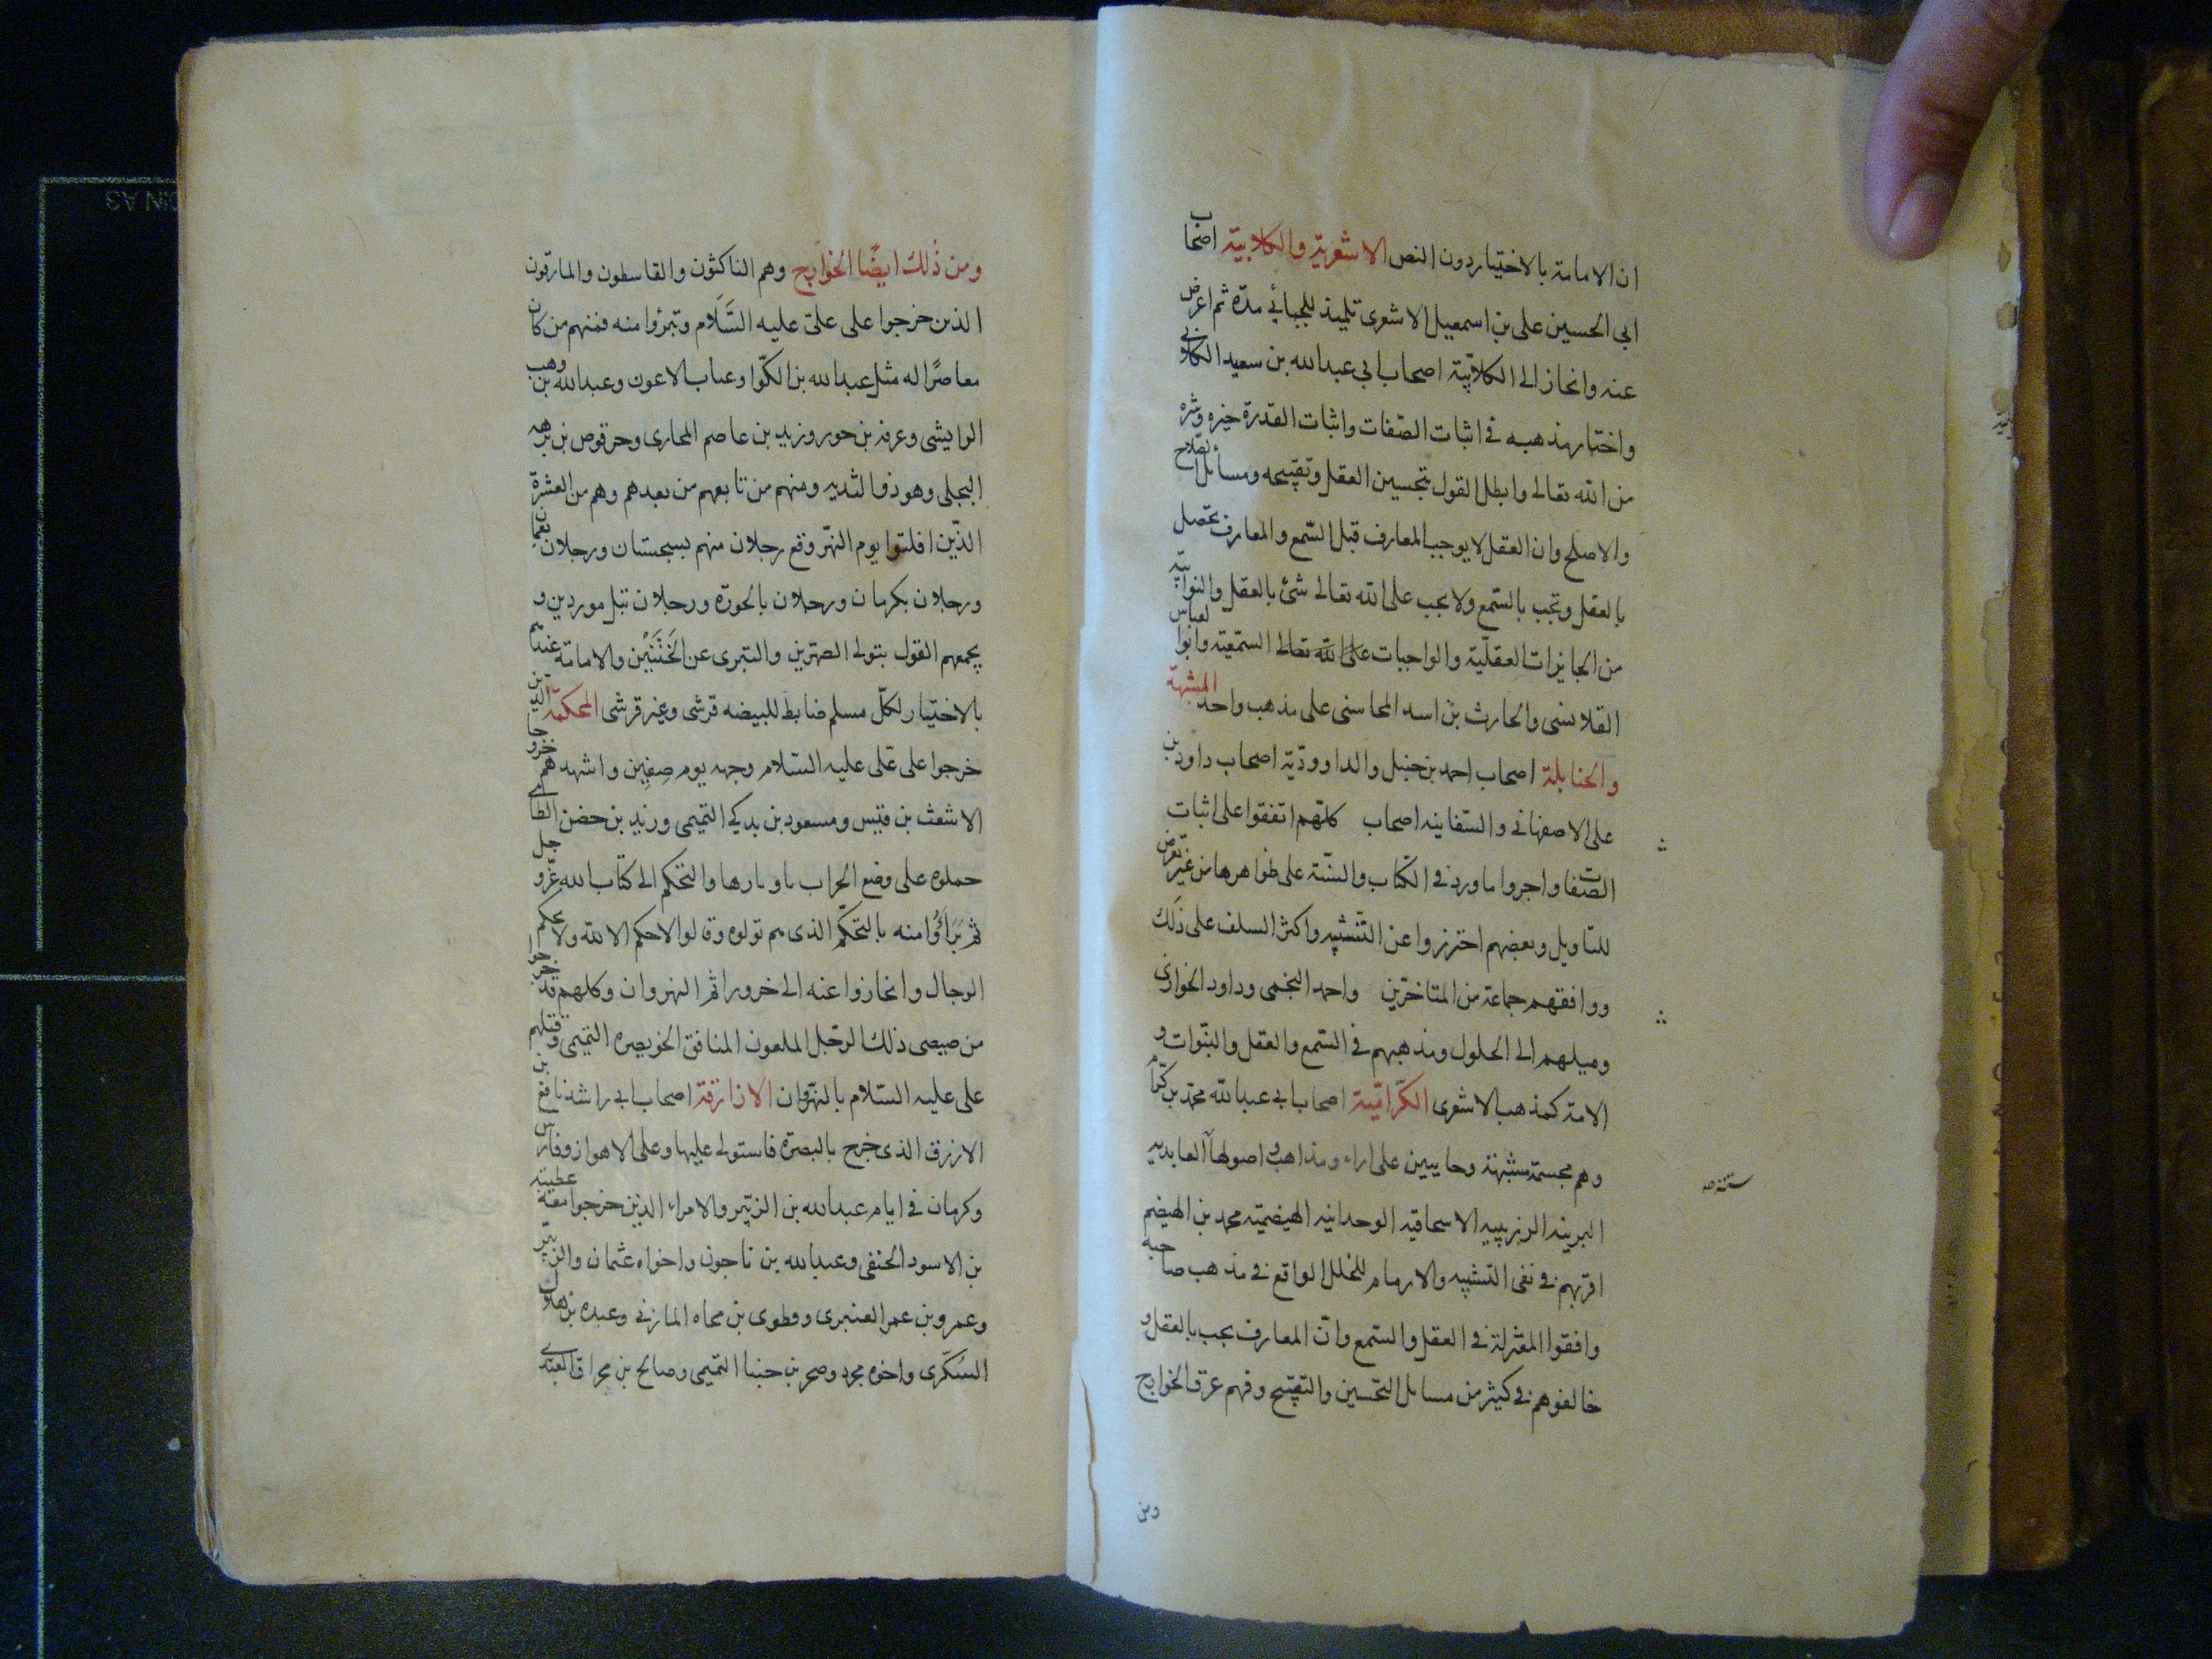 ان الامامة بالاختيار دون النص الاشعرية والكلابية اصحاب
ابي الحسين على بن اسمعيل الاشعرى تلميذ للجبائي مدّة ثم اعرض
عنه وانحاز الى الكلابيّة اصحاب ابي عبد الله بن سعيد الكلابي
واختار مذهبه في اثبات الصّفات واثبات القدرة خيره وشره
من الله تعالى وابطل القول بتحسين العقل وتقبيحه ومسائل الصّلاح
والاصلح وان العقل لا يوجب المعارف قبل السّمع والمعارف تحصل
بالعقل وتجب بالسّمع ولا يجب على الله تعالى شئ بالعقل والنوابتيه
من الجايزات العقليّة والواجبات على الله تعالى السّمعيّة وابوا لعباس
القلانسى والحارث بن اسد المحاسبى على مذهب واحد المشبهة
والحنابلة اصحاب احمد بن حنبل والداووديّة اصحاب داود بن
على الاصفهانى والسّفاينه اصحاب كلّهم اتفقوا على اثبات
الصّفات واجروا ما ورد في الكتاب والسّنة على ظواهرها من غير تعرض
للتاويل وبعضهم احترزوا عن التّشبيه واكثر السلف على ذلك
ووافقهم جماعة من المتاخرين واحمد الجمى وداود الخوارزى
وميلهم الى الحلول ومذهبهم في السّمع والعقل والنبّوات و
الامة كمذهب الاشعرى الكرّاميّة اصحاب ابي عبد الله محمّد بن كرّام
وهم مجسمة مشبهة وحاييين على اراء ومذاهب اصولها العابديه
البرينه الرزيبيه الاسحاقيه الوحدانيه الهيضميّه محمد بن الهيضم
اقربهم في نفى التشبيه والارمام للخلل الواقع في مذهب صاحبه
وافقوا المعتزلة في العقل والسّمع وانّ المعارف يجب بالعقل و
خالفوهم في كثير من مسائل التحسين والتقبيح وفهم عرق الخوارج
ومن
ومن ذلك ايضًا الخوارج وهم الناكثون والقاسطون والمارقون
الذين خرجوا على علىّ عليه السَّلام وتبرؤا منه فمنهم من كان
معاصرًا له مثل عبد الله بن الكوّا وعتاب الاعور وعبد الله بن وهب
الرايشى وعرفه بن حور وزيد بن عاصم المحارى وحرقوص بن زهير
البجلى وهو ذو الثديه ومنهم من تابعهم من بعدهم وهم من العشرة
الذّين افلتوا يوم النهر وقع رجلان منهم بسجستان ورجلان بعمان
ورجلان بكرمان ورجلان بالحوزه ورجلان بتل موردين و
يجمعهم القول بتولى الصهرين والتبرى عن الخَتَنَيْن والامامة عندهم
بالاختيار لكلّ مسلم ضابط للبيضه قرشى وغير قرشى المحكّمة الذّين
خرجوا على على عليه السّلام وجهه يوم صِفِّين واشدهم خروجا
الاشعث بن قيس ومسعود بن بدكي التميمى وزيد بن حضن الطاى
حملوه على وضع الحراب باوبارها والتحكم الى كتاب الله عزّ وجل
ثم بَرَاَؤُا منه بالتحكّم الذى هم تولوه وقالوا لا حكم الا لله ولا حكم
الرجال وانحازوا عنه الى حرورا ثم النهروان وكلهم قد خرجوا
من صيصى ذلك الرجّل الملعون المنافق الخويصره التميمى وقتلهم
على عليه السّلام بالنهروان الازارقة اصحاب ابي راشد نافع بن
الازرق الذى خرج بالبصرة فاستولى عليها وعلى الاهواز وفارس
وكرمان في ايام عبد الله بن الزبيّر والامراء الذين خرجوا معه عطيّة
بن الاسود الحنفى وعبد الله بن ناجون واخواه عثمان والزبيّر
وعمرو بن عمر العنبرى وقطرى بن محاه المازنى وعبده بن هلال
السُكّرى واخوه محرد وصحر بن حبنا التميمى وصالح بن محراق العبدى